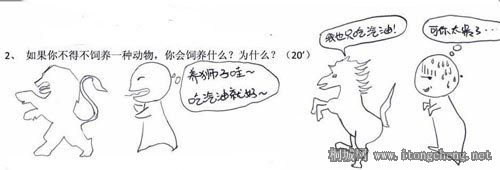 2、 如果你不得不饲养一种动物，你会饲养什么？为什么？（20′）
养狮子哇～
吃汽油就好～
我也只吃汽油！
可你太累了…
www.itongcheng.net